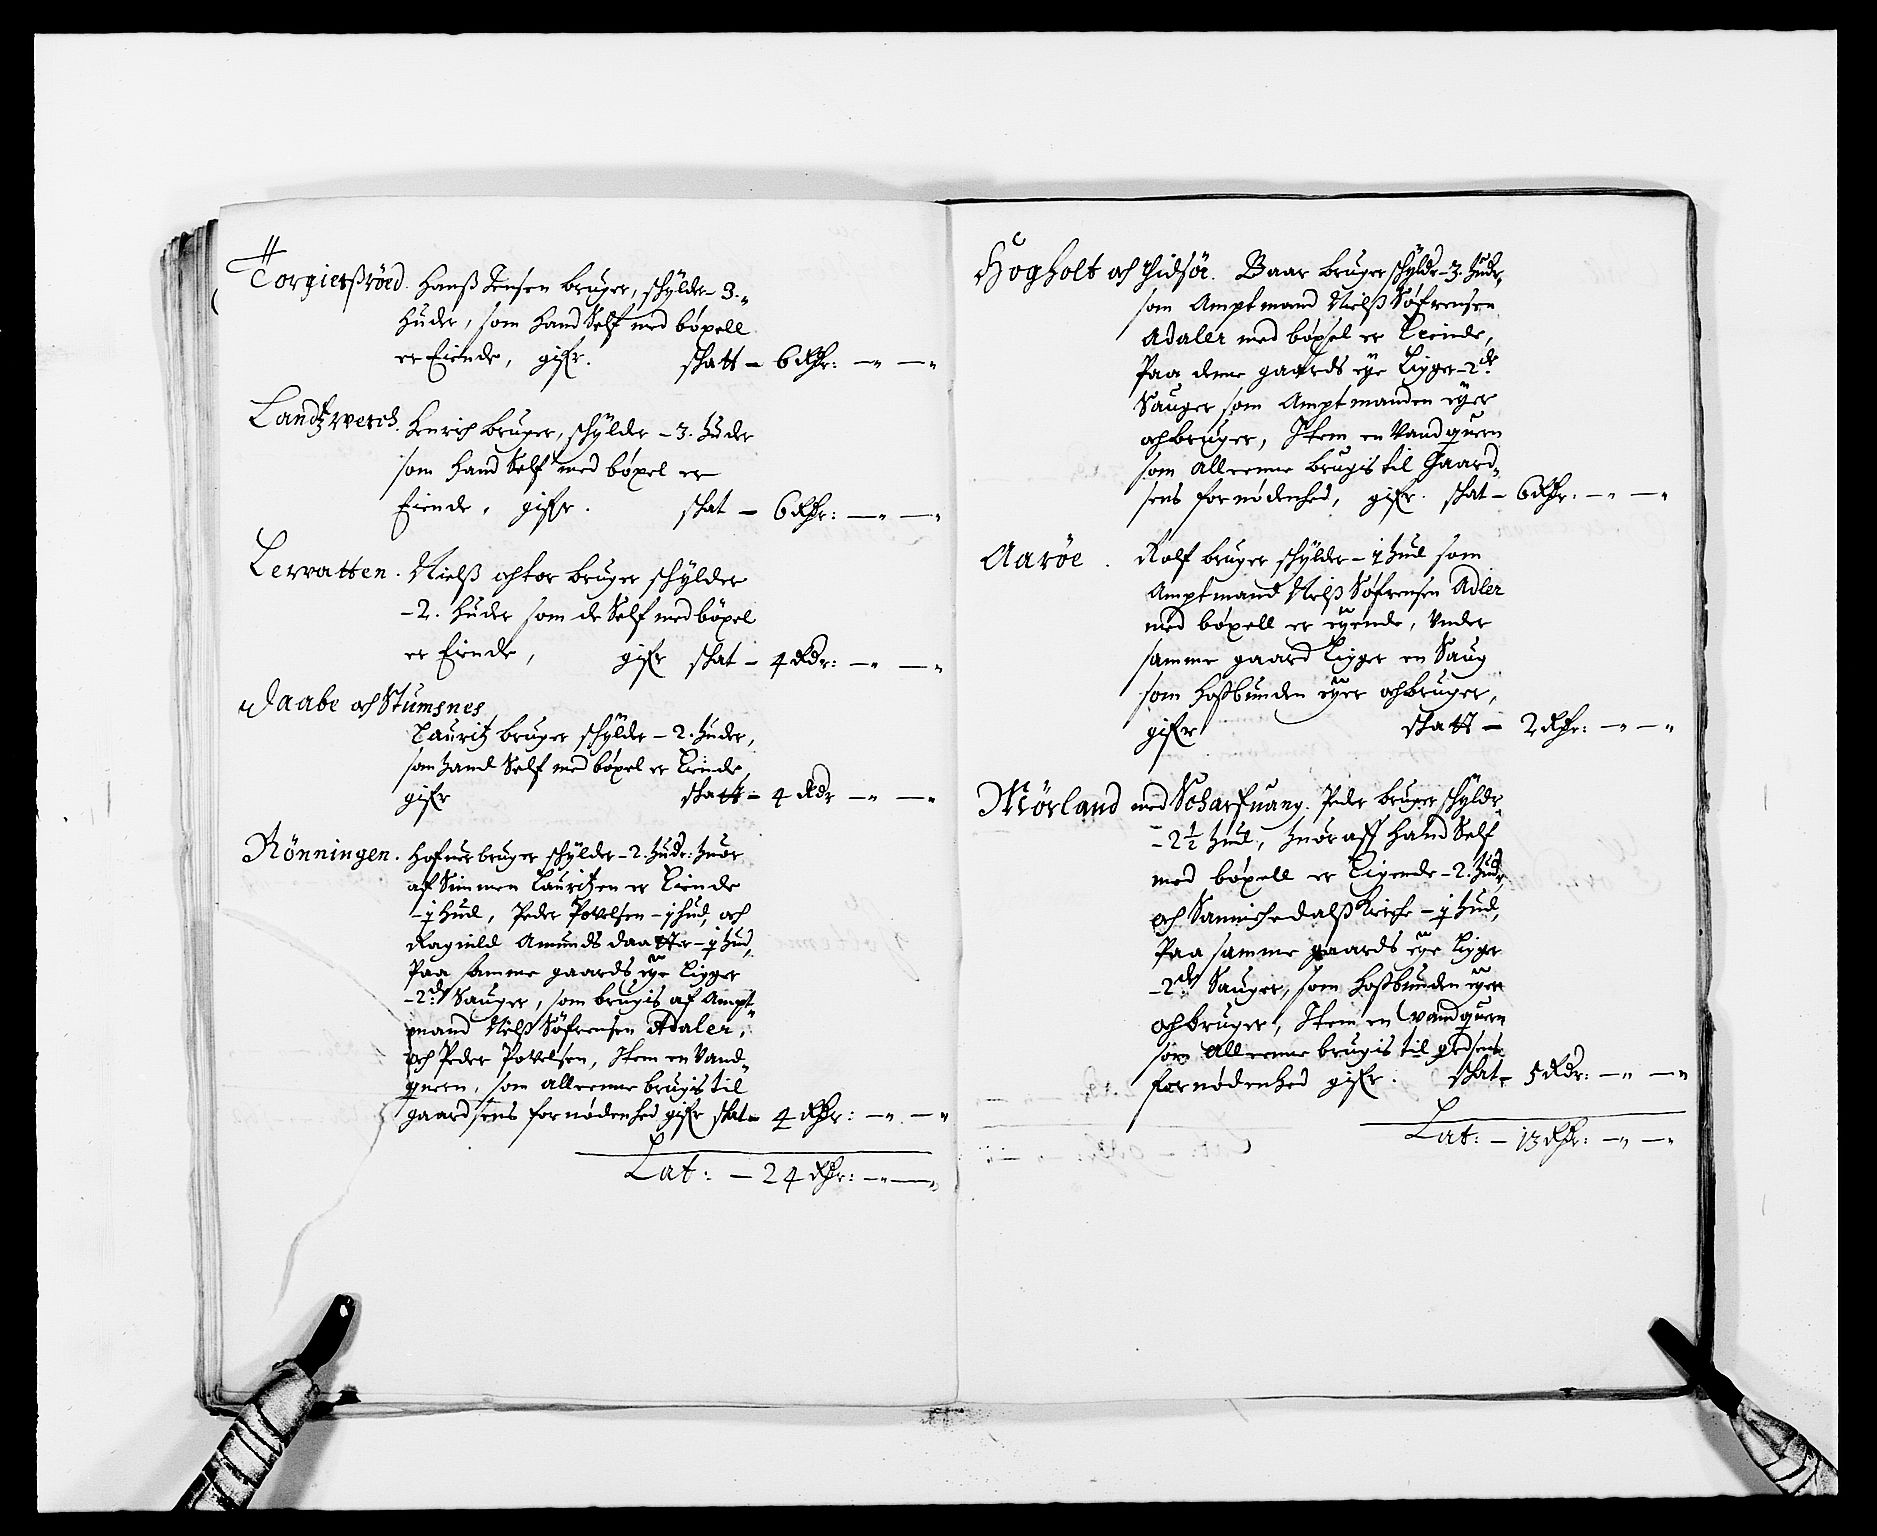 Torgierßröed. Hanß Jensen bruger, schylder - 3.
huder, som hand Self med böxell
er Eiende, gifr. schatt - 6 Rdr: - " - "
Landtzwerch. Henrich bruger, schylder - 3. huder
som hand Self med böxel er
Eiende, giffr. schat - 6 Rdr: - " - "
Lervatten. Nielß och tor bruger schylder
- 2. huder som de Self med böxel
er Eiende, gifr schat - 4 Rdr: - " - "
Daabe och Stumsnes
Lauritz bruger schylder - 2. huder,
som hand Self med böxel er Eiende
gifr schatt - 4 Rdr - " - "
Rönningen. bruger schylder - 2. hudr: huor
af Simmen Lauritzen er Eiende
- 1 hud, Peder Povelsen - 1 hud, och
Ragnild Amunds daatter - 1 hud,
Paa samme gaards eÿe Ligger
- 2de Sauger, som brugis af Ampt
mand Nielß Söfrensen Adaler,
och Peder Povelsen, Item en Vand
quern, som alleenne brugis til
gaardsens fornödenhed gifr schat - 4 Rdr: - " - "
Lat: - 24 Rdr: - " - "
Hogholt och Tidsöe. Baar bruger schylder - 3. hudr,
som Amptmand Nielß Söfrensen
Adaler med böxel er Eeinde,
Paa denne gaards eÿe Ligger - 2de
Sauger som Amptmanden eÿer
och bruger, Item en Vandquern
som alleenne brugis til Gaard
sens fornödenhed, gifr. schat - 6 Rdr: - " - "
Aaröe. Rolf bruger schylder - 1 hud som
Amptmand Nielß Söfrensen Adler
med böxell er eÿende, Vnder
samme gaard Ligger en Saug
som Hoßbunden eÿer och bruger,
gifr schatt - 2 Rdr: - " - "
Mörland med Scharfuang. Peder bruger schyldr
- 2 1/2 hud, huor aff hand Self
med böxell er Eigende - 2. hudr,
och Sannichedalß Kirche - 1/2 hud,
Paa samme gaards eÿe Ligger
- 2de Sauger, som Hoßbunden eÿer
och bruger, Item en vandquern
som alleenne brugis til grdsens
fornödenhed gifr. schat - 5 Rdr: - " - "
Lat: - 13 Rdr: - " - "